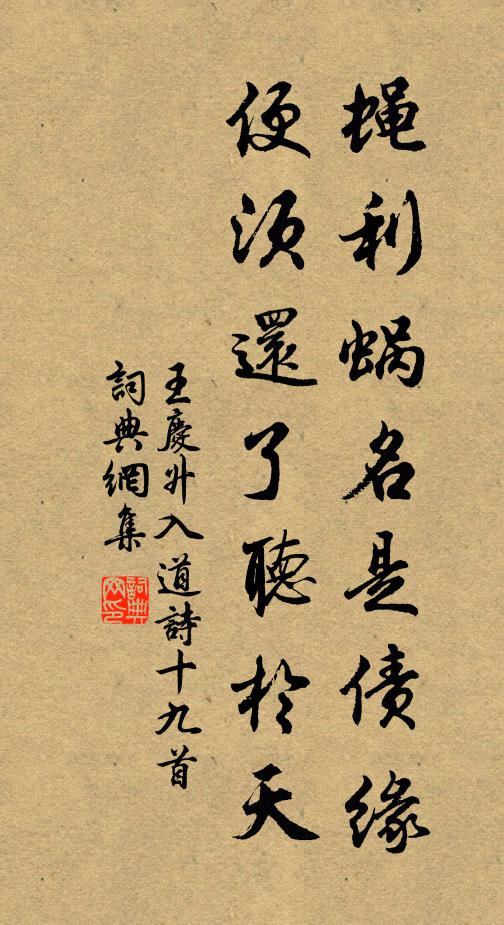 蝇利蜗名是债缘
便须還了聽於天
王慶升入道詩十九首
詞典網集
詞典網印